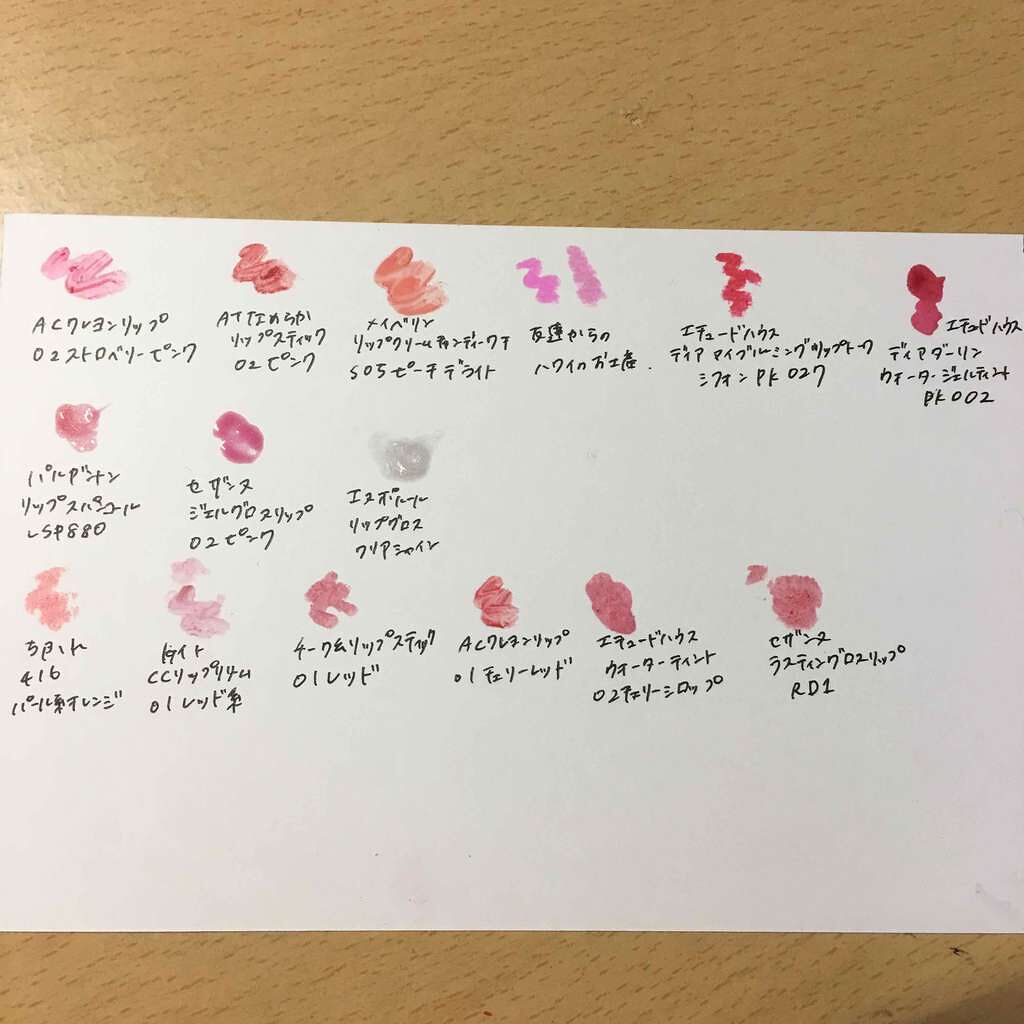 ACクレヨンリップ
02ストロベリーピンク
ATなめらか
リップスティック
02ピンク
メイベリン
リップクリームキャンディーワオ
S05ピーチデライト
友達からの
ハワイのお土産.
エチュードハウス
ディアマイブルーミングリップトーク
シフォンPK027
エチュードハウス
ディアダーリン
ウォータージェルティント
PK002
パルガントン
リップスパ
LSP880
セザンヌ
ジェルグロスリップ
02ピンク
エスポルール
リップグロス
クリアシャイン
ちふれ
416
パール系オレンジ
メンターム
CCリップクリーム
01レッド系
チーク&リップスティック
01レッド
ACクレヨンリップ
01チェリーレッド
エチュードハウス
ウォーターティント
02チェリーシロップ
セザンヌ
ラスティングロスリップ
RD1